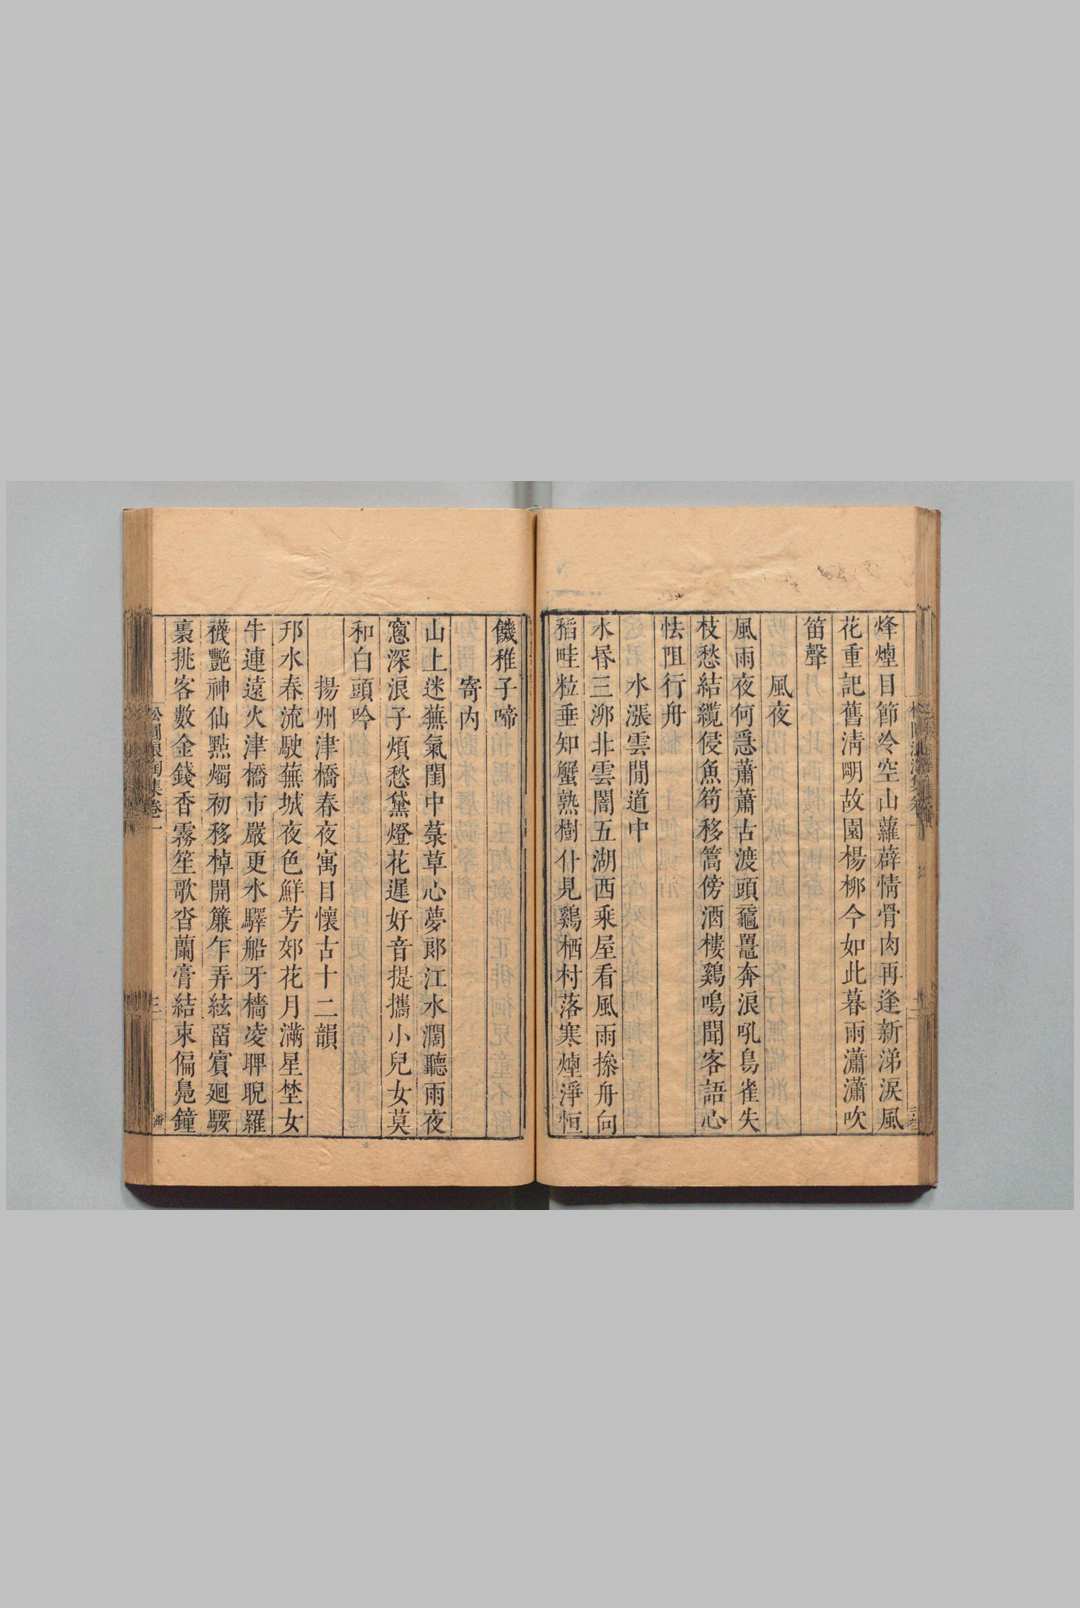 烽煙目節冷空山蘿薜情骨肉再逢新涕淚風
花重記舊清明故園楊柳今如此暮雨瀟瀟吹
笛聲
風夜
風雨夜何悬蕭蕭古渡頭黿鼉奔浪吼鳥雀失
枝愁結纜侵魚笱移篙傍酒樓鷄鳴聞客語心
怯阻行舟
水漲雲間道中
水昬三泖北雲闇五湖西乘屋看風雨操舟向
稻畦粒垂知蟹熟樹什見鷄栖村落寒煙淨恒
饑稚子啼
寄内
山上迷蕪氣閨中䔧草心夢郎江水濶聽雨夜
窻深浪子煩愁黛燈花遲好音提攜小兒女莫
和白頭吟
揚州津橋春夜寓目懷古十二韻
邗水春流駛蕪城夜色鮮芳郊花月滿星埜女
牛連遠火津橋市嚴更水驛船牙檣凌睥睨羅
襪艷神仙點燭初移棹開簾乍弄絃畱賓廻騕
褭挑客數金錢香霧笙歌沓蘭膏結束偏鳧鐘
松圓浪淘集卷一
三